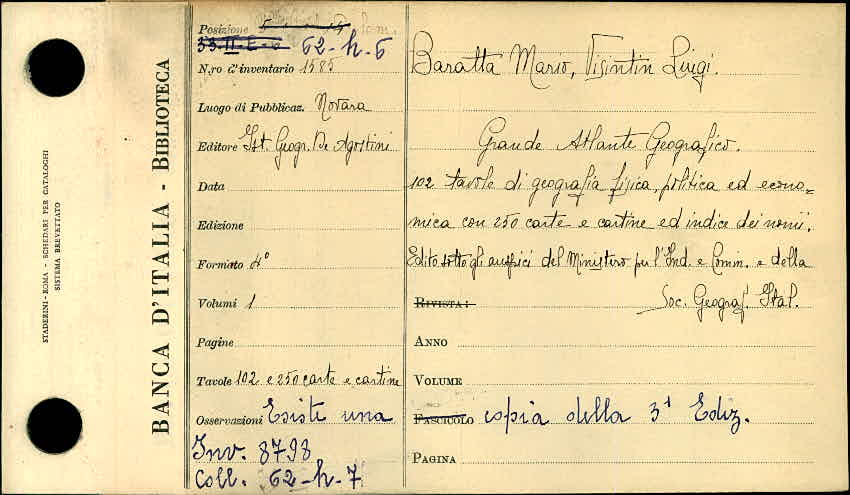 STADERINI-ROMA - SCHEDARI PER CATALOGHI
SISTEMA BREVETTATO
BANCA D'ITALIA - BIBLIOTECA
Posizione
33-II-E-6 62-h-6
N,ro d'inventario 1585
Luogo di Pubblicaz. Novara
Editore Ist. Geogr. De Agostini
Data
Edizione
Formato 4°
Volumi 1
Pagine
Tavole 102 e 250 carte e cartine
Osservazioni Esiste una
Inv. 8798
Coll. 62-h-7
Baratta Mario, Visintin Luigi.
Grande Atlante Geografico.
102 tavole di geografia fisica, politica ed econo=
mica con 250 carte e cartine ed indice dei nomi.
Edito sotto gli auspici del Ministero per l'Ind. e Comm. e della
RIVISTA: Soc. Geograf. Ital.
ANNO
VOLUME
FASCICOLO copia della 3ª Ediz.
PAGINA